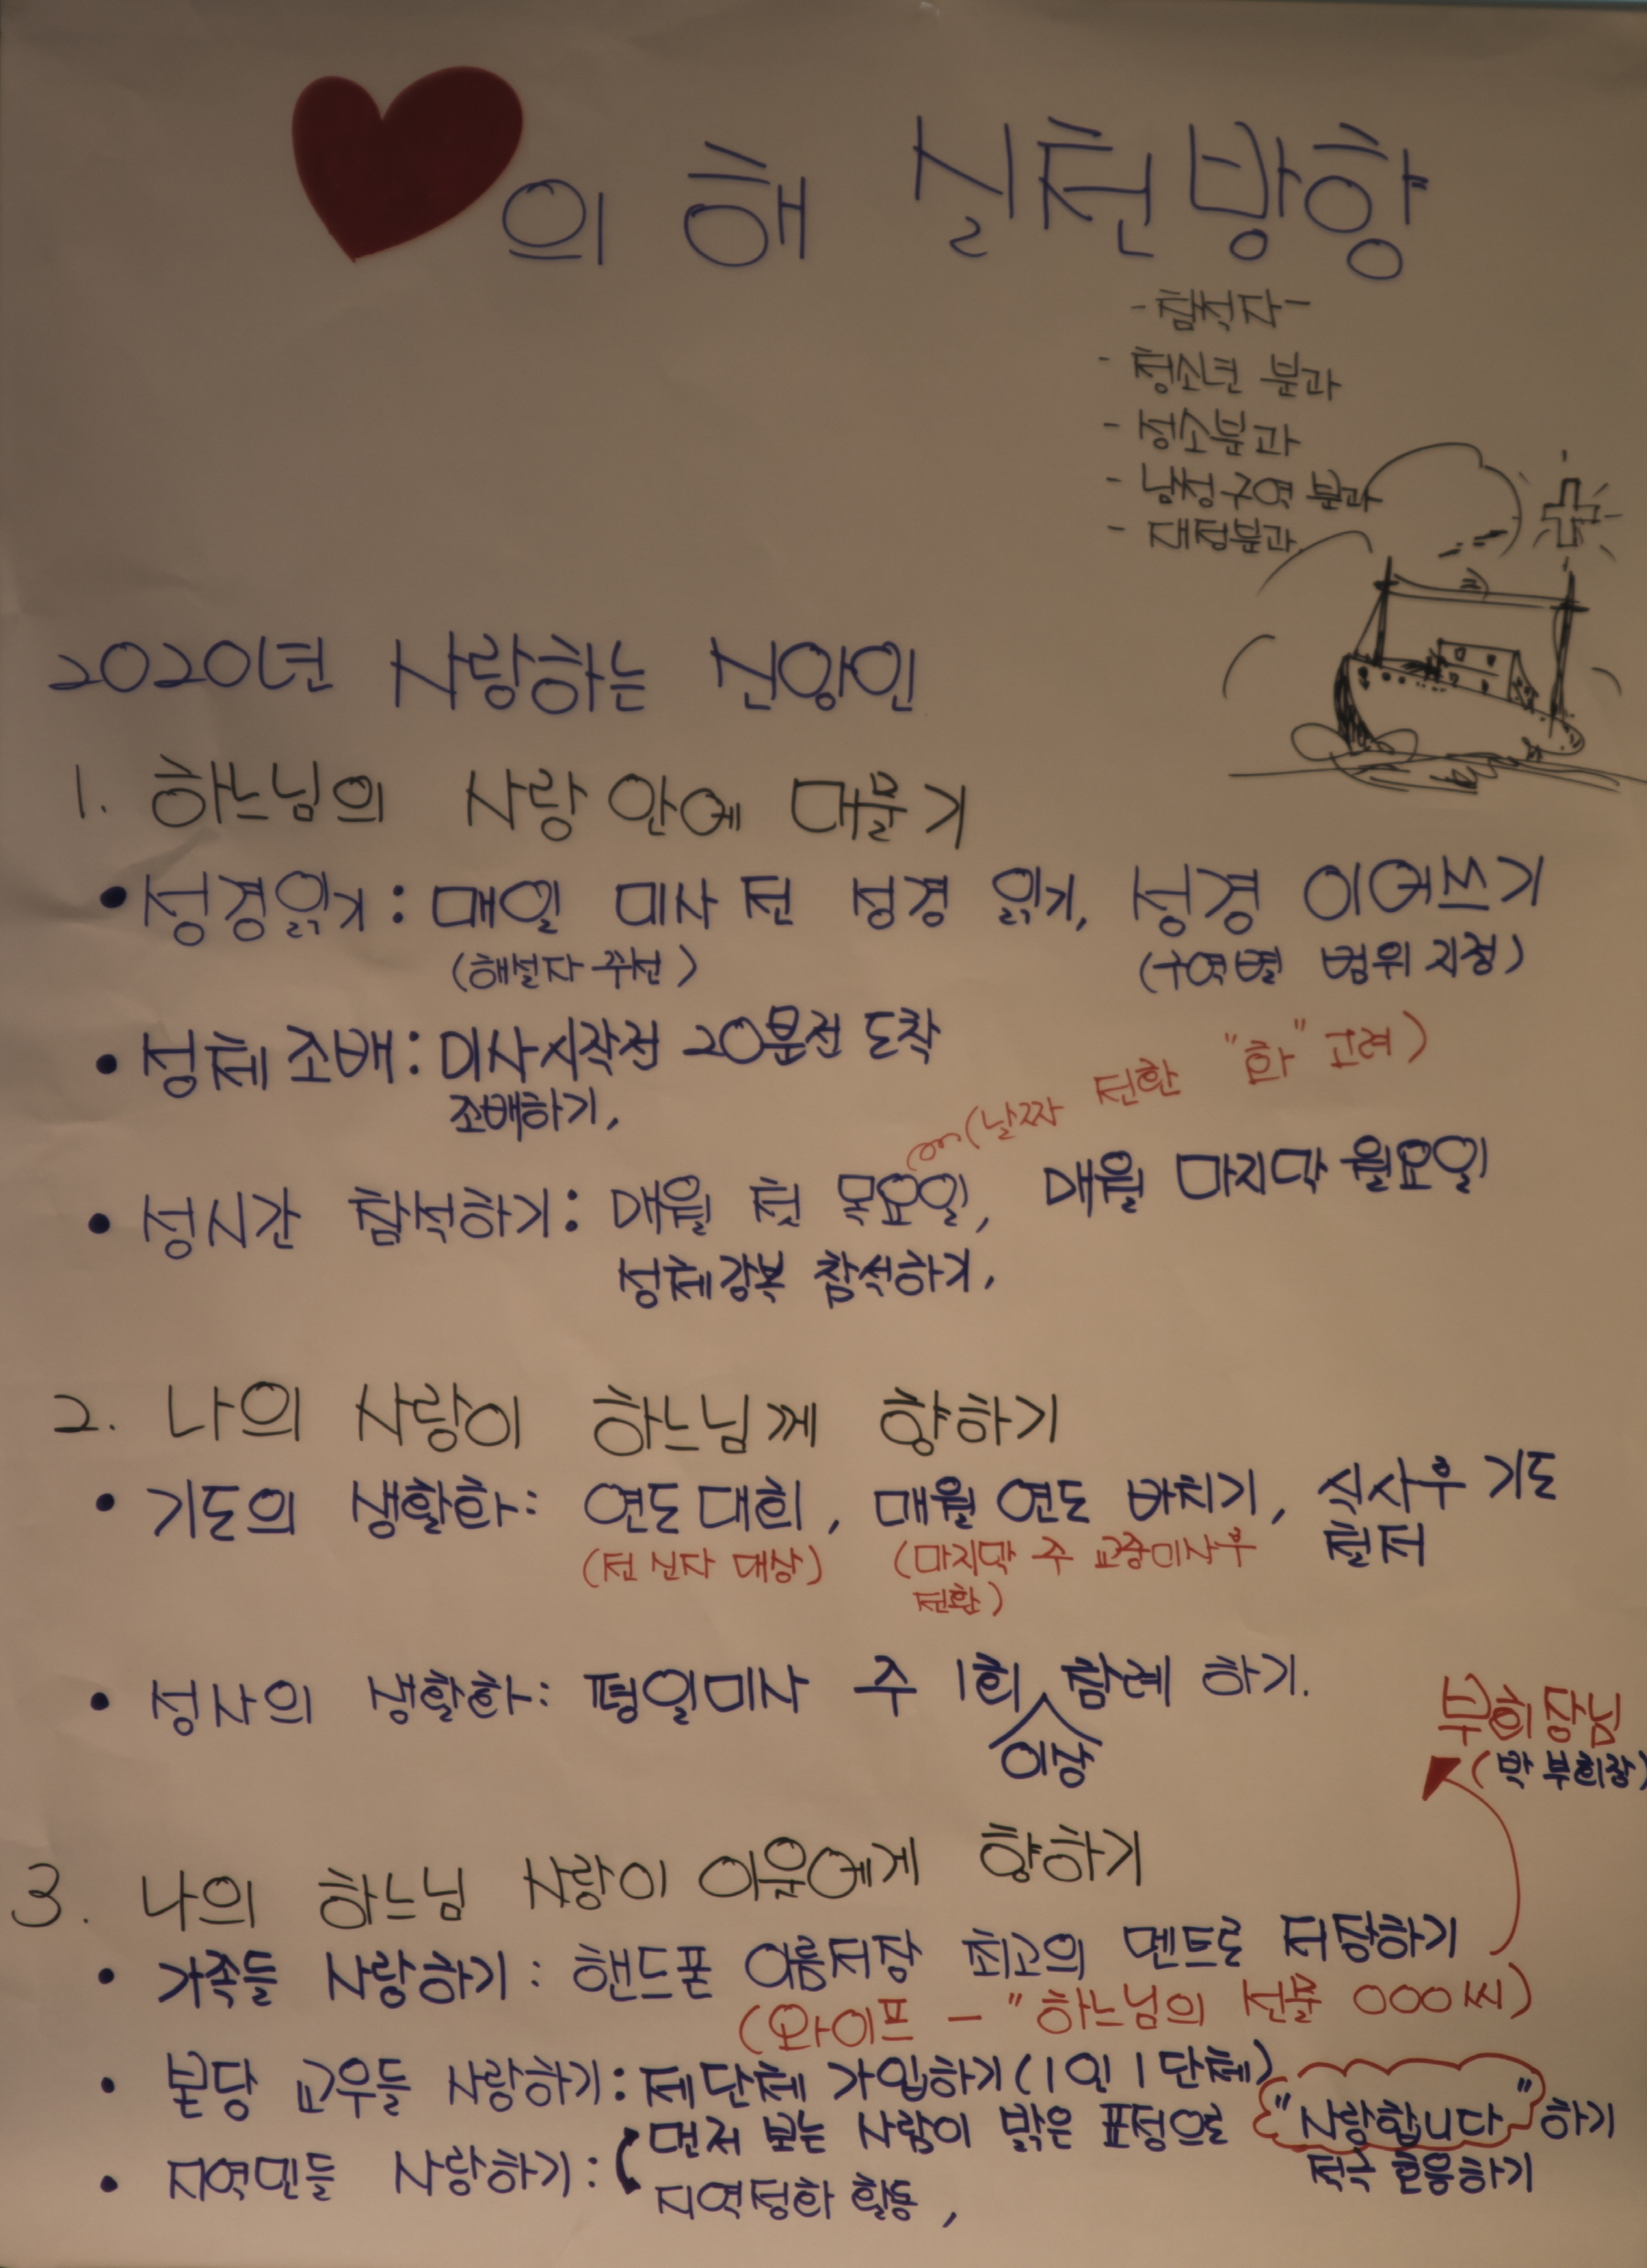 의 해 실천방향
-참석자-
- 청소년 분과
- 성소분과
- 남성구역 분과
- 재정분과
2020년 사랑하는 신앙인
1. 하느님의 사랑 안에 머물기
• 성경읽기 : 매일 미사 전 성경 읽기, 성경 이어쓰기
(해설자 주선) (구역별 범위 지정)
• 성체 조배 : 미사시작전 20분전 도착
조배하기,
(날짜 전환 "화" 고려)
• 성시간 참석하기 : 매월 첫 목요일, 매월 마지막 월요일
성체강복 참석하기,
2. 나의 사랑이 하느님께 향하기
• 기도의 생활화 : 연도대회, 매월 연도 바치기, 식사후 기도
(전 신자 대상) (마지막 주 교중미사후 철저
전환)
• 성사의 생활화 : 평일미사 주 1회 참례 하기.
이상
부회장님
(박 부회장)
3. 나의 하느님 사랑이 이웃에게 향하기
• 가족들 사랑하기 : 핸드폰 이름저장 최고의 멘트로 저장하기
(와이프 - "하느님의 선물 ○○○씨)
• 본당 교우들 사랑하기 : 제단체 가입하기 (1인 1단체)
먼저 보는 사람이 밝은 표정으로 "사랑합니다" 하기
• 지역민들 사랑하기 : 지역정화 활동, 적극 호응하기